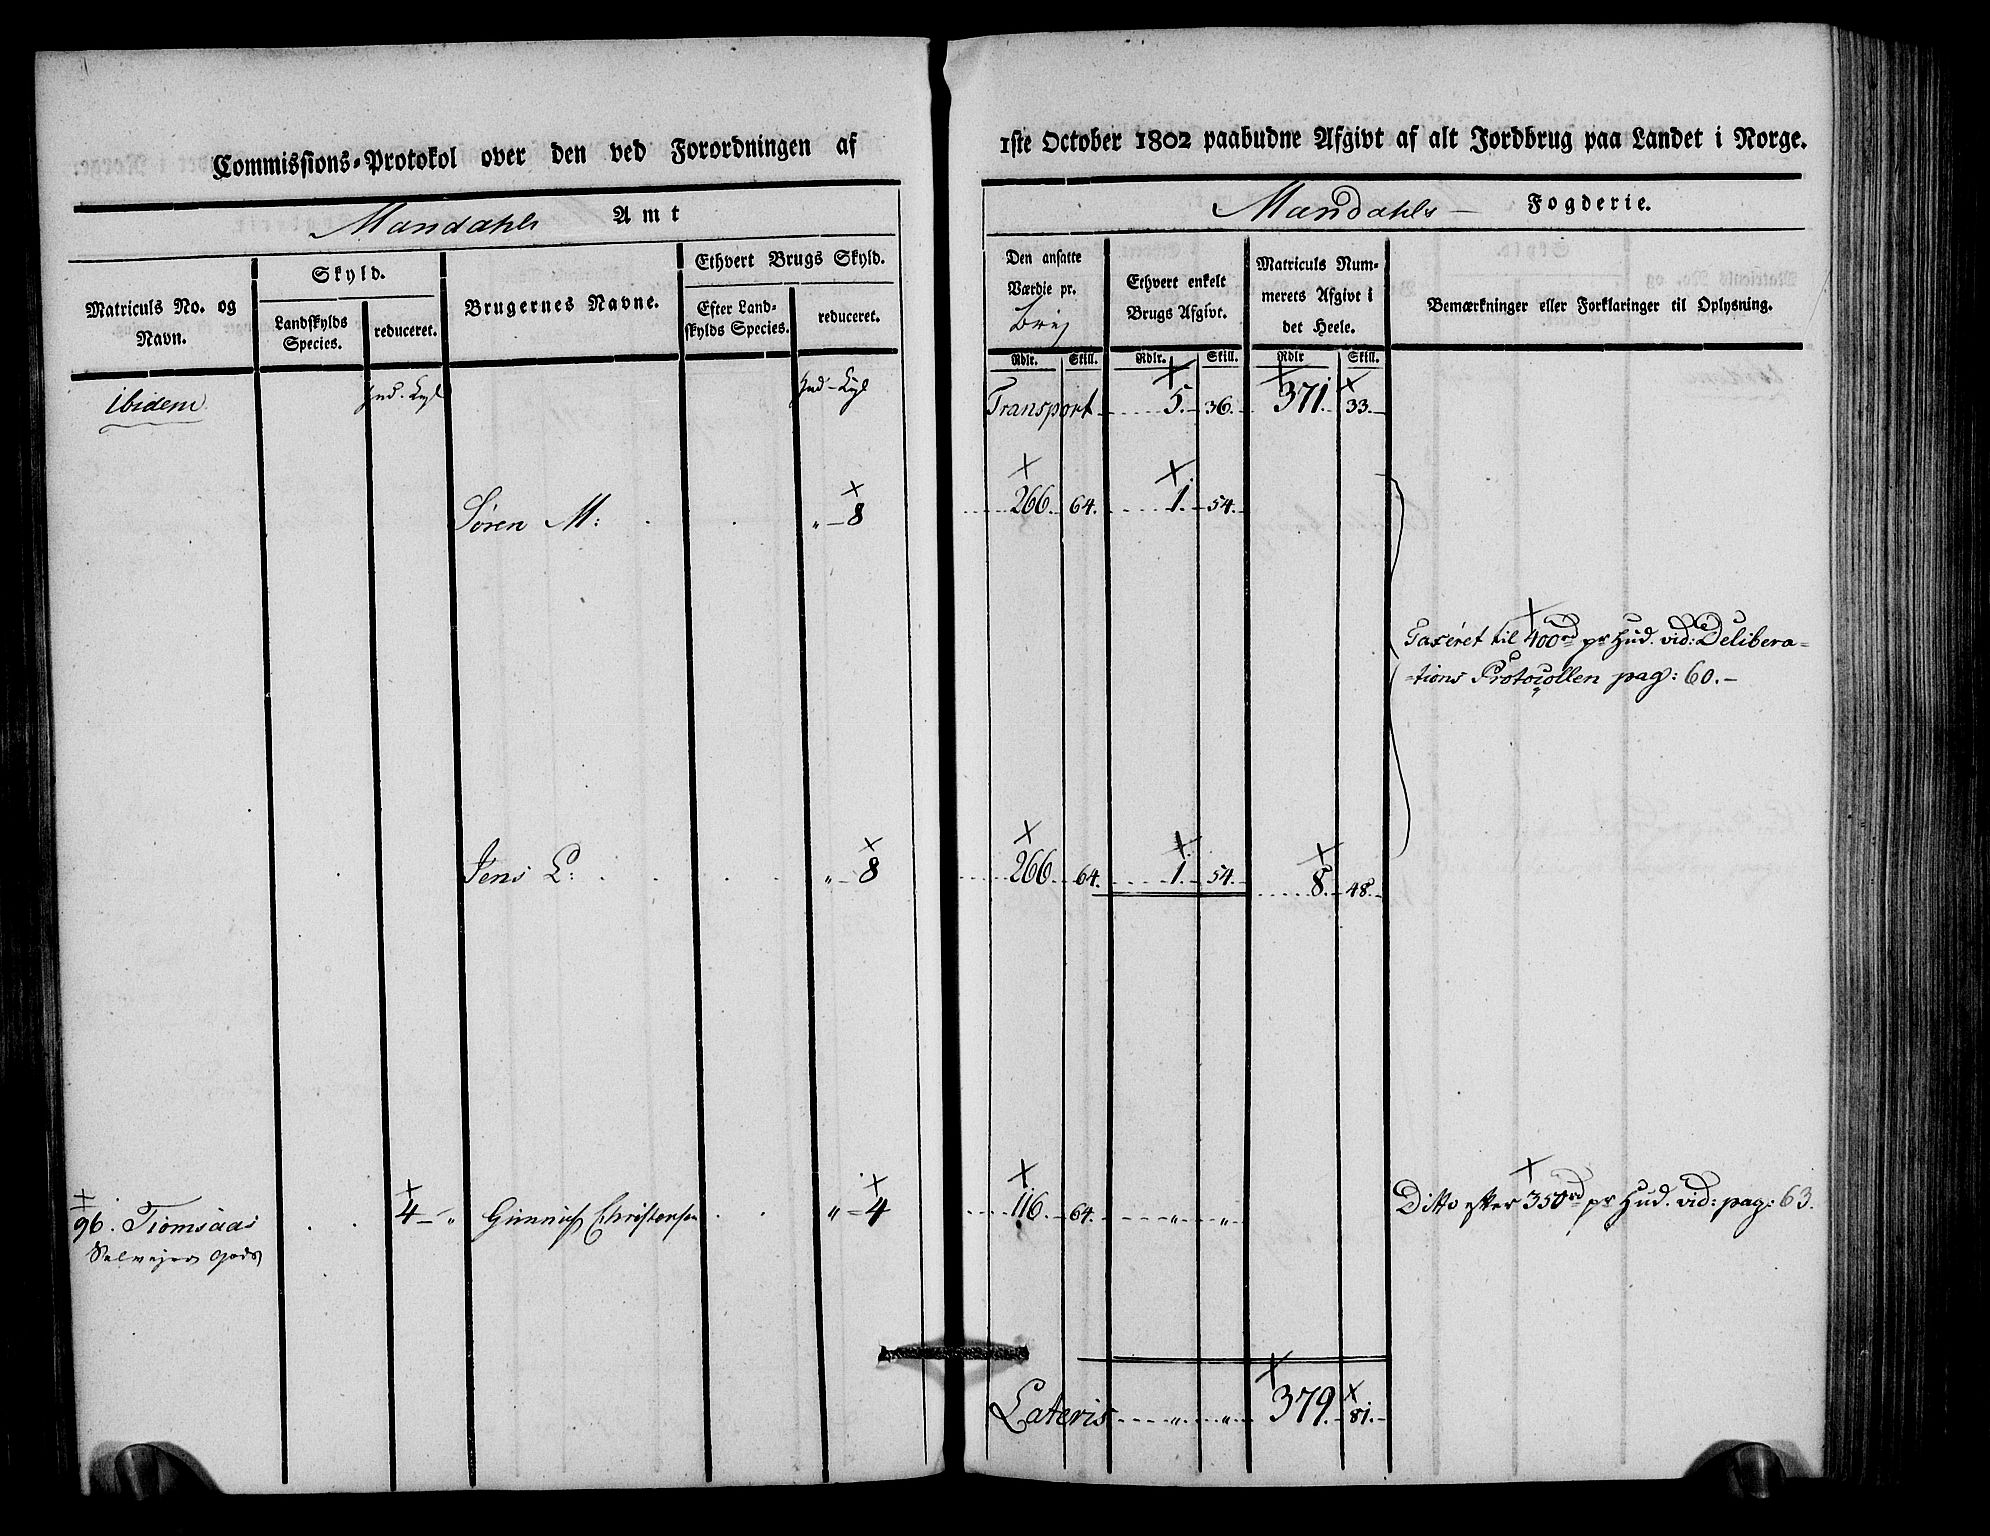 Commissions-Protokol over den ved Forordningen af
Mandahls Amt
Matriculs No. og Navn.
Skyld.
Landskylds Species.
reduceret.
Brugernes Navne.
Ethvert Brugs Skyld.
Efter Landskylds Species.
reduceret.
ibidem
Søren M: „ - 8
Jens L: „ - 8
96. Tiomsaas 4 - „ Gunnuf Christensen „ - 4
Selvejer Gods
1ste October 1802 paabudne Afgivt af alt Jordbrug paa Landet i Norge.
Mandahls Fogderie.
Den ansatte Værdie pr.
Ethvert enkelt Brugs Afgivt.
Matriculs Nummerets Afgivt i det Heele.
Bemærkninger eller Forklaringer til Oplysning.
Rdlr. Skill. Rdlr. Skill. Rdlr Skill.
Transport 5. 36. 371. 33.
266. 64. 1. 54.
Taxeret til 400rd pr Hud. vid: Delibera=
=tions Protocollen pag: 60.
266. 64. 1. 54. 8. 48.
116. 64. „ „ Ditto efter 350rd pr Hud. vid: pag: 63.
Lateris „ „ 379. 81.